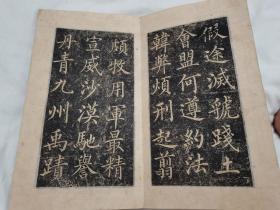 假途滅虢踐土
會盟何遵約法
韓弊煩刑起翦
頗牧用軍最精
宣威沙漠馳譽
丹青九州禹蹟